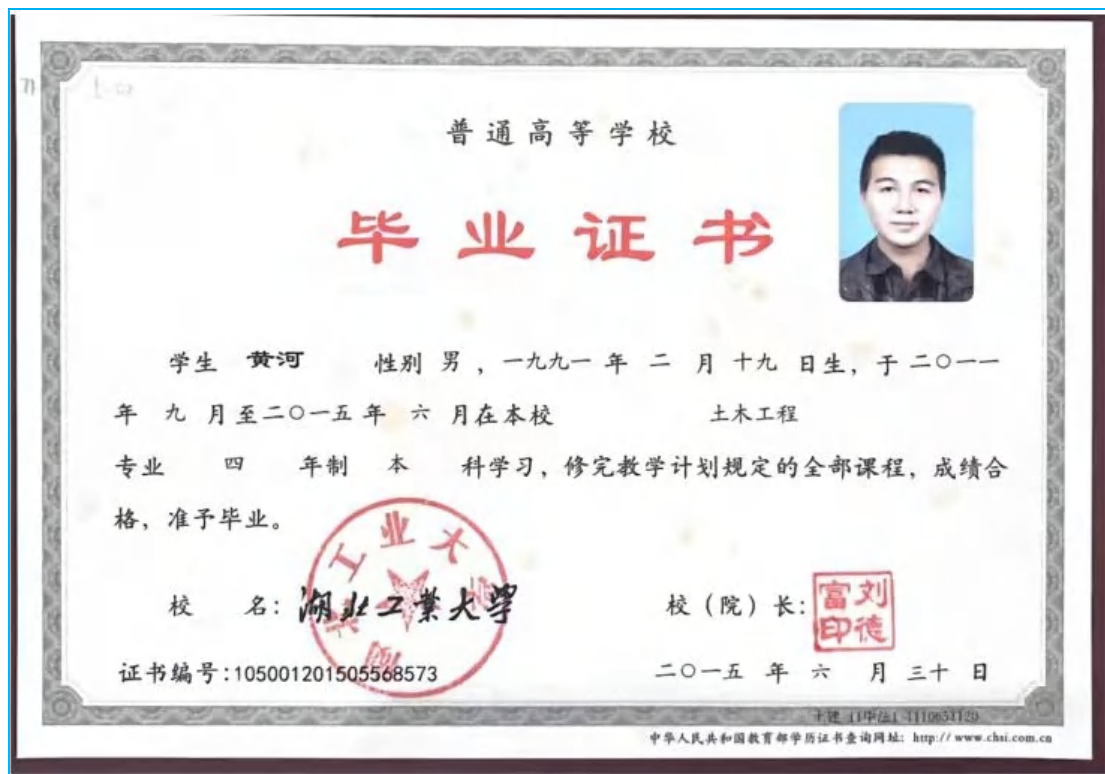 普通高等学校
毕业证书
学生 黄河 性别 男 ，一九九一 年 二 月 十九 日生，于 二〇一一
年 九 月至二〇一五 年 六 月在本校 土木工程
专业 四 年制 本 科学习，修完教学计划规定的全部课程，成绩合
格，准予毕业。
校 名：湖北工业大学
湖北工业大学
校（院）长：
刘德富印
证书编号：105001201505568573
二〇一五 年 六 月 三十 日
中华人民共和国教育部学历证书查询网址：http://www.chsi.com.cn